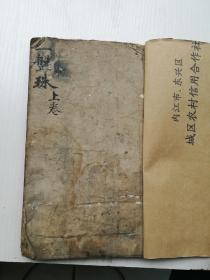 一盤珠
上卷
内江市.东兴区
城区农村信用合作社